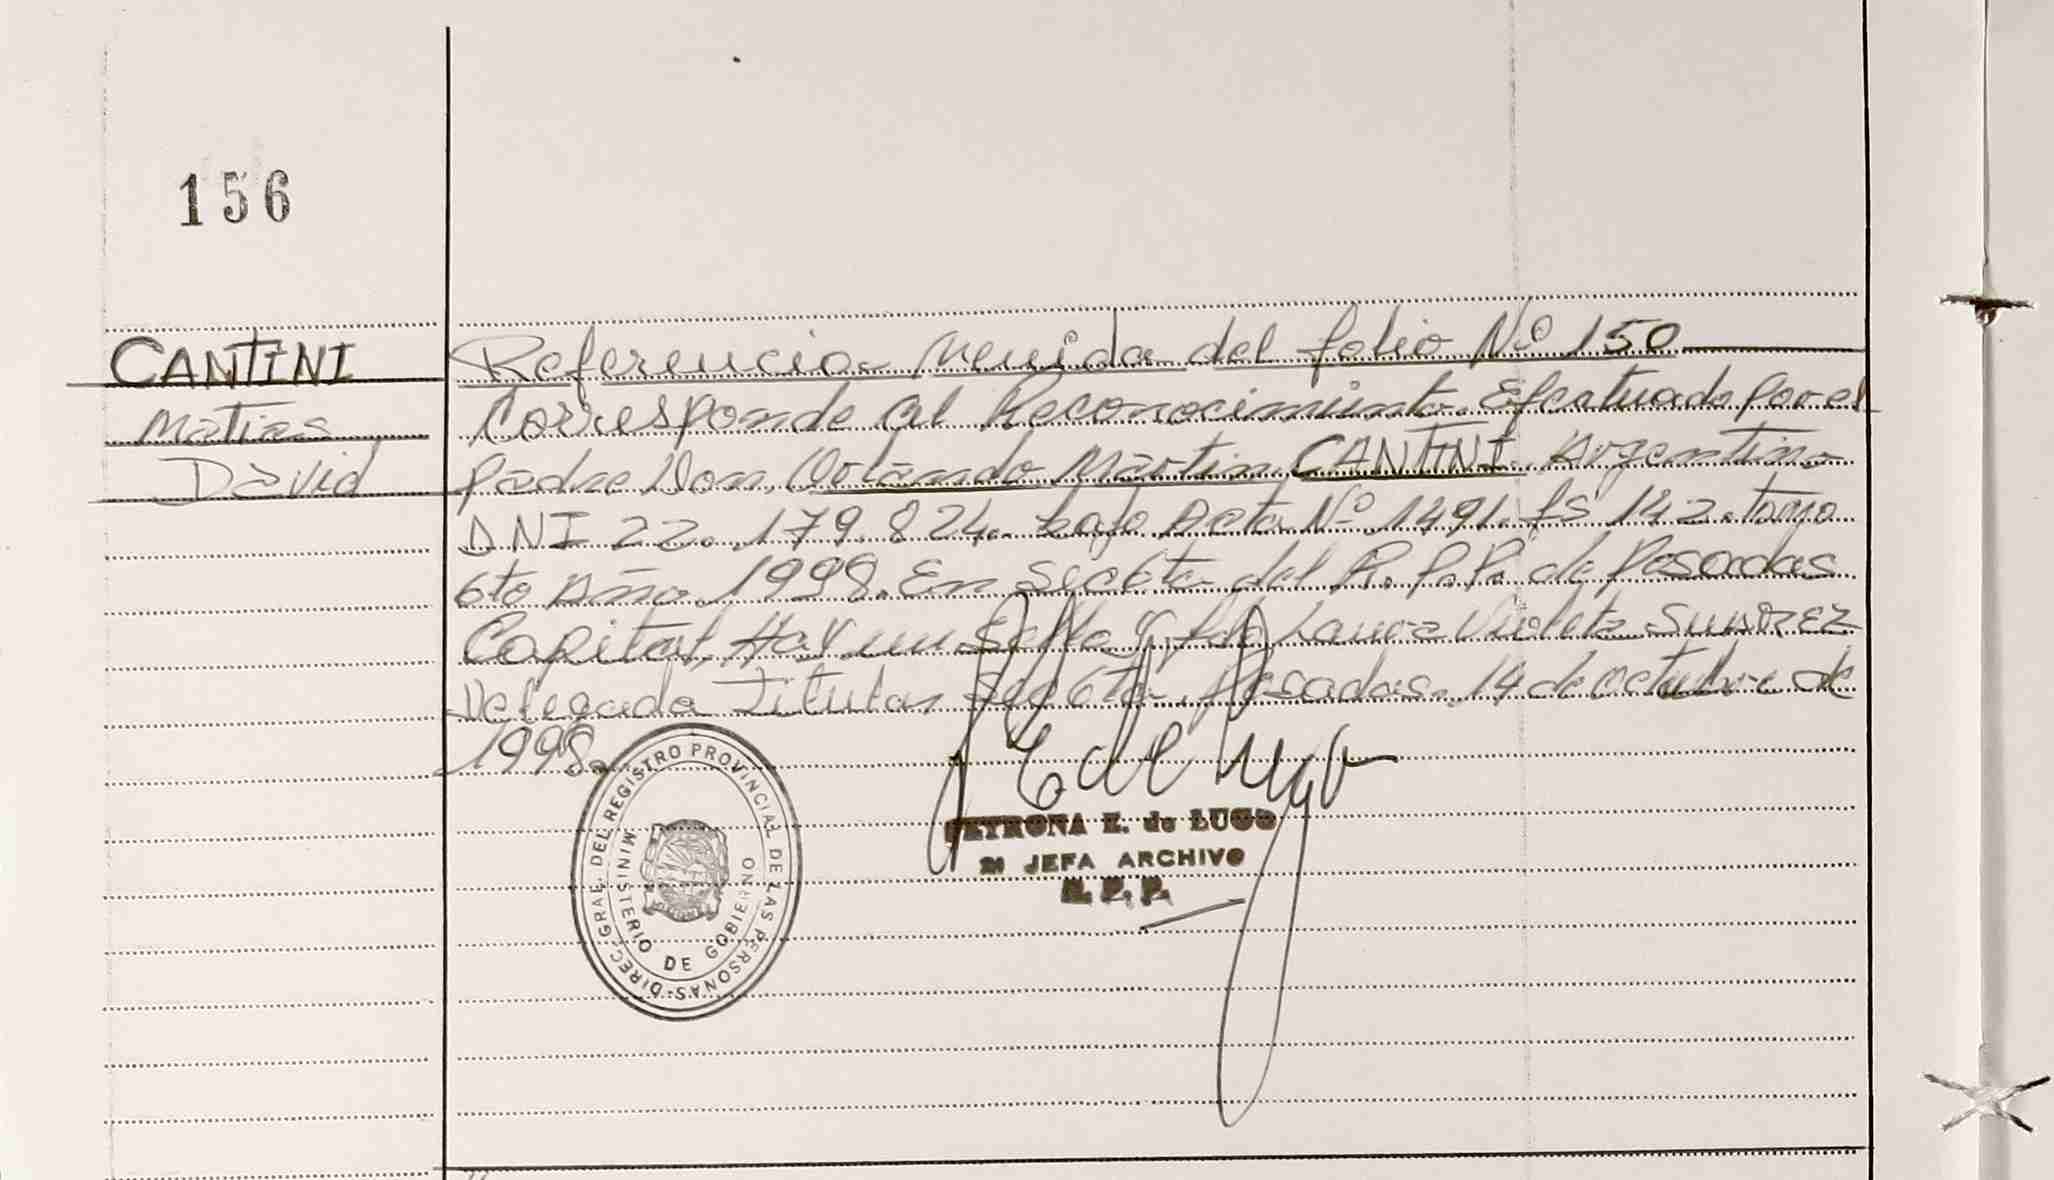 156
CANTINI
Matias
David
Referencia Venida del folio Nº 150
Corresponde al Reconocimiento Efectuado Por el
Padre Don Orlando Martin CANTINI Argentino
DNI 22.179.824. bajo Acta Nº 1491. fs 142. tomo
6to Año 1998. En Secc 6ta del R.P.P. de Posadas
Capital, Hay un Sello y fdo Laura Violeta SUAREZ
Delegada Titular Secc 6ta. Posadas. 14 de octubre de
1998.
DIREC. GRAL. DEL REGISTRO PROVINCIAL DE LAS PERSONAS
MINISTERIO DE GOBIERNO
PETRONA E. de LUGO
JEFA ARCHIVO
R. P. P.